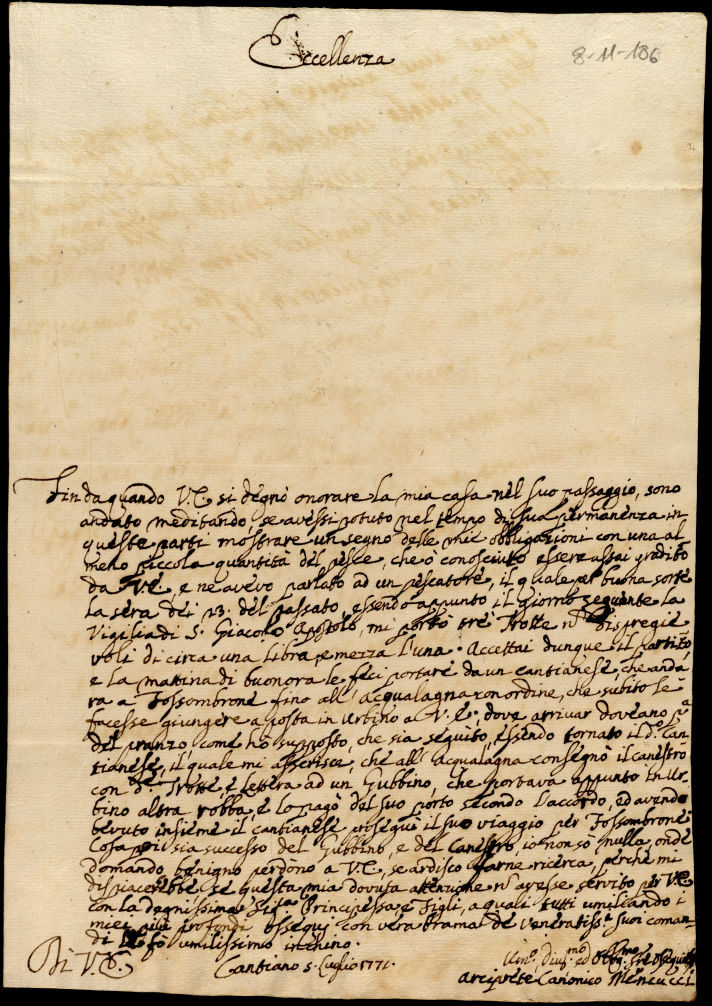 Eccellenza
8-11-186
Fin da quando V.E. si degnò onorare la mia casa nel suo passaggio, sono
andato meditando, se avessi potuto nel tempo di sua permanenza in
queste parti mostrare un segno delle mie obbligazioni con una al
meno piccola quantità del pesce, che ò conosciuto essere assai gradito
da V.E., e ne avevo parlato ad un pescatore, il quale per buona sorte
la sera dei 23. del passato, essendo appunto il giorno seguente la
Vigilia di S. Giacomo Apostolo, mi portò tre Trotte nñ dispregie
voli di circa una libra, e mezza l'una. Accettai dunque il partito
e la mattina di buonora le feci portare da un cantianese, che anda
va a Fossombrone fino all'acqualagna con ordine, che subito le
facesse giungere a posta in Urbino a V.E. dove arrivar doveano
del pranzo, come hò supposto, che sia seguito, essendo tornato il d.o Can
tianese, il quale mi asserisce, che all'acqualagna consegnò il canestro
con d.e Trotte, e lettera ad un Gubbino, che portava appunto in Ur
bino altra robba, e lo pagò del suo porto secondo l'accordo, ed avendo
bevuto insieme il cantianese proseguì il suo viaggio per Fossombrone
Cosa poi sia successo del Gubbino, e del Canestro, io non sò nulla, onde
domando benigno perdono a V.E., se ardisco farne ricerca, perche mi
dispiacerebbe se questa mia dovuta attenzione nñ avesse servito per V.E.
con la degnissima Sig.ra Principessa, e Figli, a quali tutti umiliando i
miei più profondi ossequj con vera brama de veneratiss.i suoi coman
di fò umilissimo inchino.
Di V.E.
Cantiano 5. Luglio 1771.
Um.o, Div.mo, ed Obb.mo
arciprete Canonico Meneucci